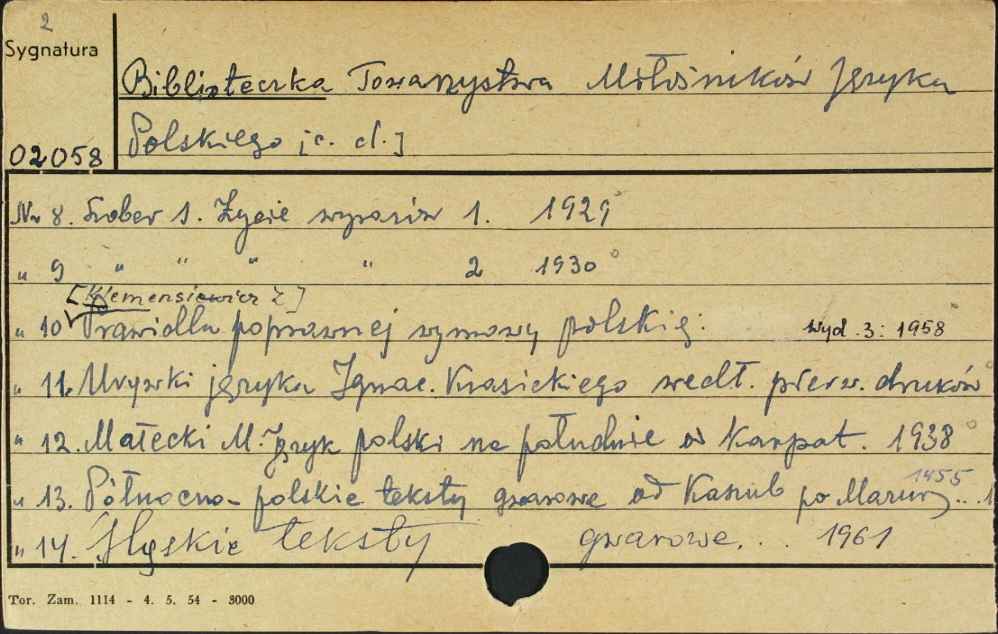 2
Sygnatura
Biblioteczka Towarzystwa Miłośników Języka
Polskiego [c. d.]
02058
Nr 8. Szober S. Życie wyrazów 1. 1929
" 9 " " " " 2 1930
[Klemensiewicz Z]
" 10 Prawidła poprawnej wymowy polskiej. wyd. 3: 1958
" 11. Urywki języka Ignac. Krasickiego wedł. pierw. druków
" 12. Małecki M. Język polski na południe od Karpat. 1938
" 13. Północno-polskie teksty gwarowe od Kaszub po Mazury.. 1955
" 14. Śląskie teksty gwarowe... 1961
Tor. Zam. 1114 - 4. 5. 54 - 3000